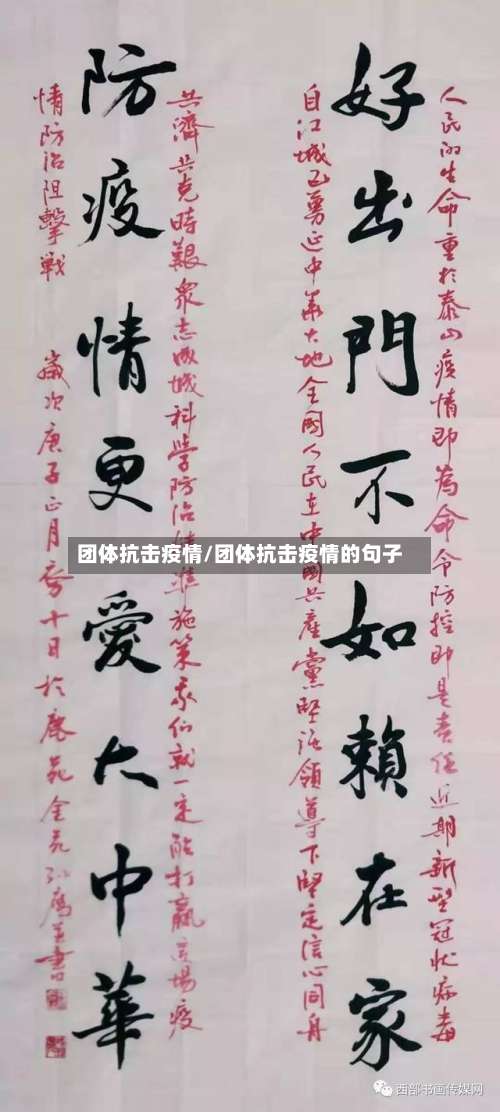 好出門不如賴在家
防疫情更愛大中華
人民的生命重於泰山疫情即為命令防控即是責任近期新型冠狀病毒
自江城正蔓延中華大地全國人民在中國共產黨堅強領導下堅定信心同舟
共濟共克時艱衆志成城科學防治精準施策我们就一定能打贏這場疫
情防治阻擊戰
歲次庚子正月初十日於
書
团体抗击疫情/团体抗击疫情的句子
西部书画传媒网